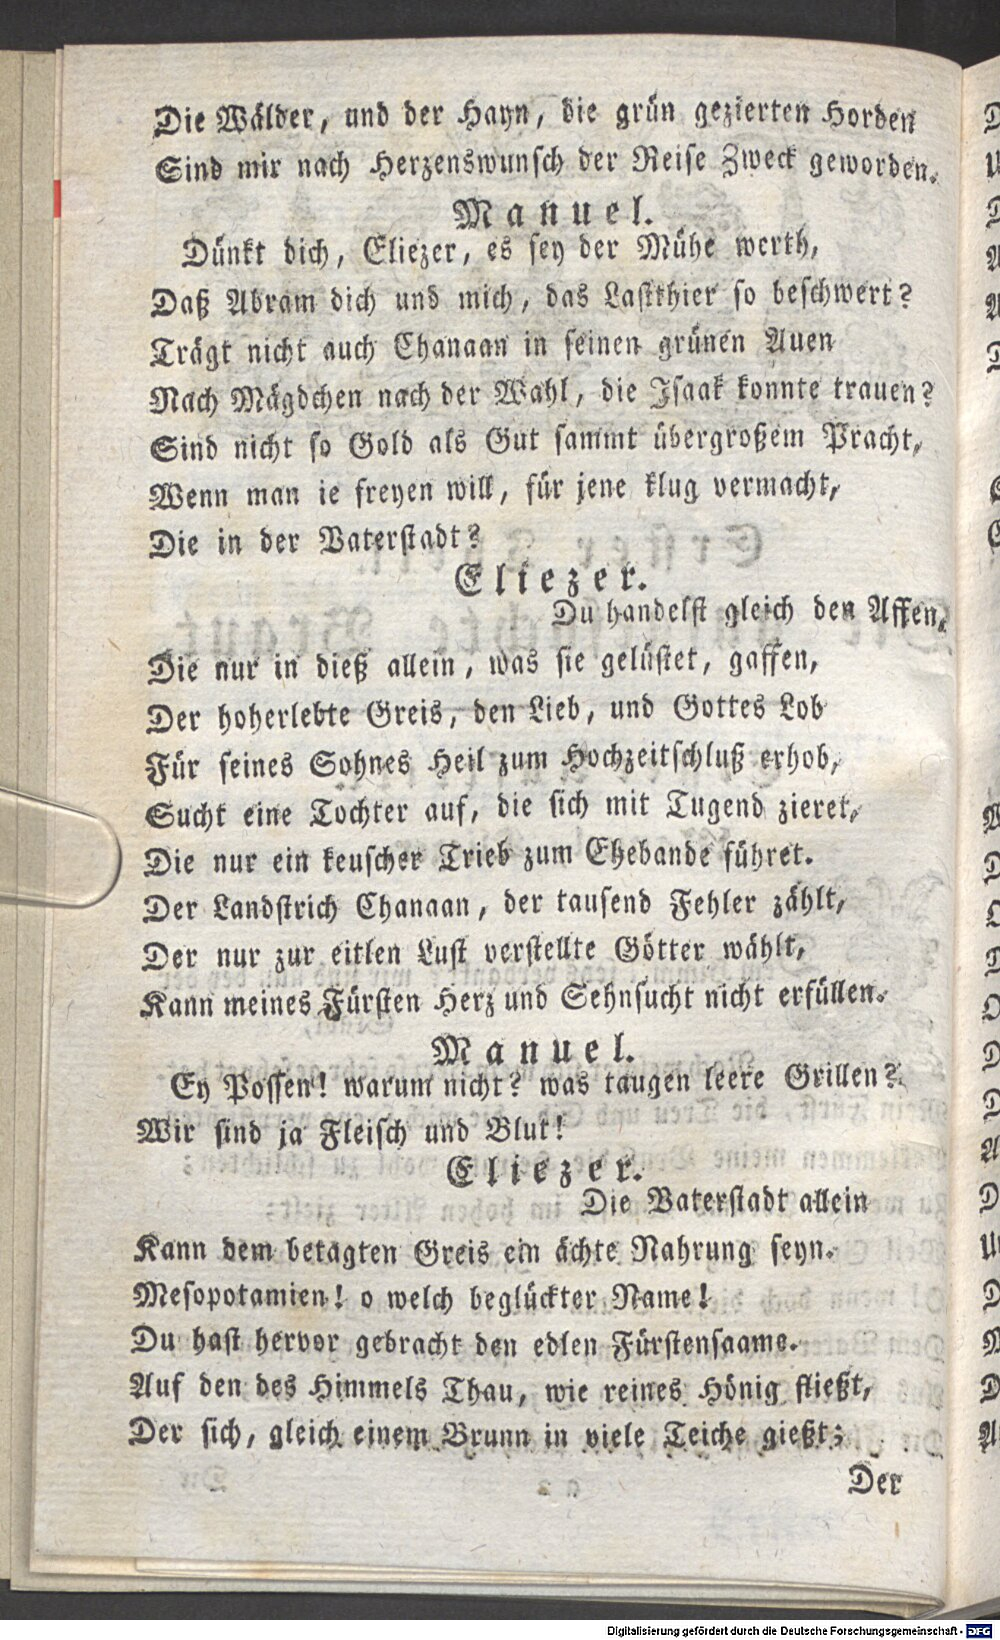 Die Wälder, und der Hayn, die grün gezierten Horden
Sind mir nach Herzenswunsch der Reise Zweck geworden.
Manuel.
Dünkt dich, Eliezer, es sey der Mühe werth,
Daß Abram dich und mich, das Lastthier so beschwert?
Trägt nicht auch Chanaan in seinen grünen Auen
Nach Mägdchen nach der Wahl, die Isaak konnte trauen?
Sind nicht so Gold als Gut sammt übergroßem Pracht,
Wenn man ie freyen will, für jene klug vermacht,
Die in der Vaterstadt?
Eliezer.
Du handelst gleich den Affen,
Die nur in dieß allein, was sie gelüstet, gaffen,
Der hoherlebte Greis, den Lieb, und Gottes Lob
Für seines Sohnes Heil zum Hochzeitschluß erhob,
Sucht eine Tochter auf, die sich mit Tugend zieret,
Die nur ein keuscher Trieb zum Ehebande führet.
Der Landstrich Chanaan, der tausend Fehler zählt,
Der nur zur eitlen Lust verstellte Götter wählt,
Kann meines Fürsten Herz und Sehnsucht nicht erfüllen.
Manuel.
Ey Possen! warum nicht? was taugen leere Grillen?
Wir sind ja Fleisch und Blut!
Eliezer.
Die Vaterstadt allein
Kann dem betagten Greis ein ächte Nahrung seyn.
Mesopotamien! o welch beglückter Name!
Du hast hervor gebracht den edlen Fürstensaame.
Auf den des Himmels Thau, wie reines Hönig fließt,
Der sich, gleich einem Brunn in viele Teiche gießt;
Der
Digitalisierung gefördert durch die Deutsche Forschungsgemeinschaft - DFG